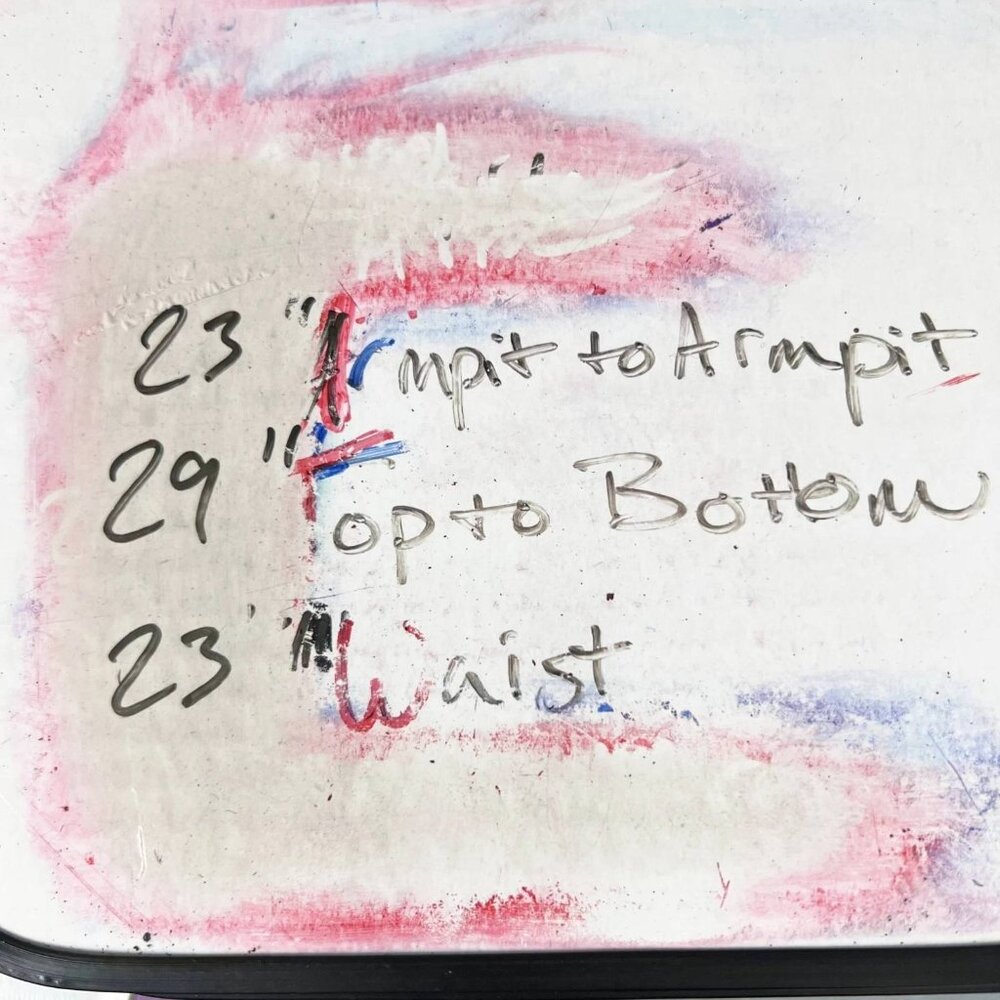 23" Armpit to Armpit
29" Top to Bottom
23" Waist